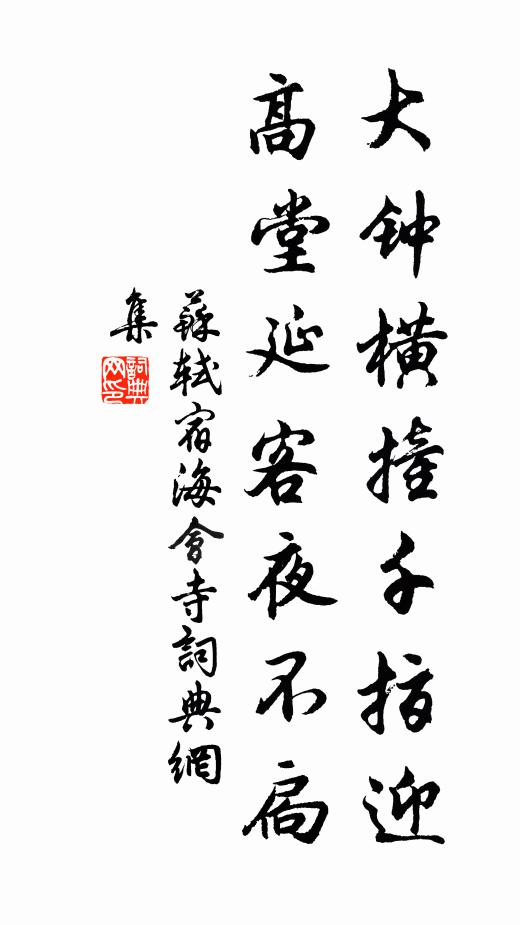 大钟橫撞千指迎
高堂延客夜不扃
蘇軾宿海會寺詞典網
集
詞典網印